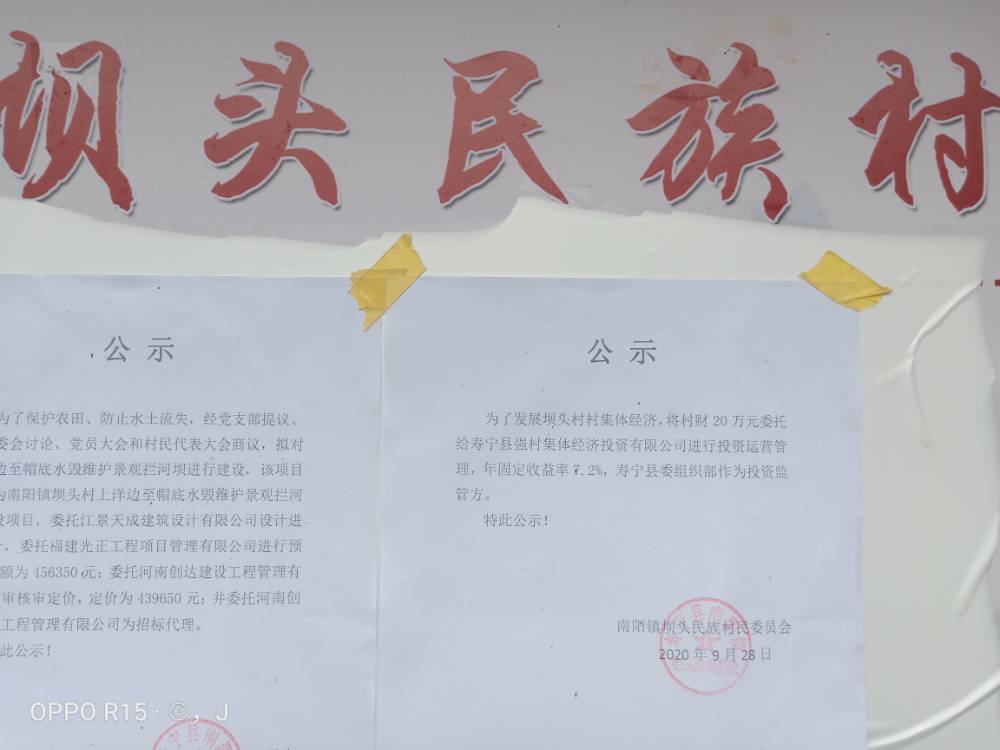 坝头民族村
公示
为了保护农田、防止水土流失，经党支部提议、
委会讨论、党员大会和村民代表大会商议，拟对
边至帽底水毁维护景观拦河坝进行建设，该项目
为南阳镇坝头村上洋边至帽底水毁维护景观拦河
设项目，委托江景天成建筑设计有限公司设计进
，委托福建光正工程项目管理有限公司进行预
额为456350元；委托河南创达建设工程管理有
审核审定价，定价为439650元；并委托河南创
工程管理有限公司为招标代理。
此公示！
公示
为了发展坝头村村集体经济，将村财20万元委托
给寿宁县强村集体经济投资有限公司进行投资运营管
理，年固定收益率7.2%，寿宁县委组织部作为投资监
管方。
特此公示！
南阳镇坝头民族村民委员会
2020年9月28日
宁县南
OPPO R15 · ©，J